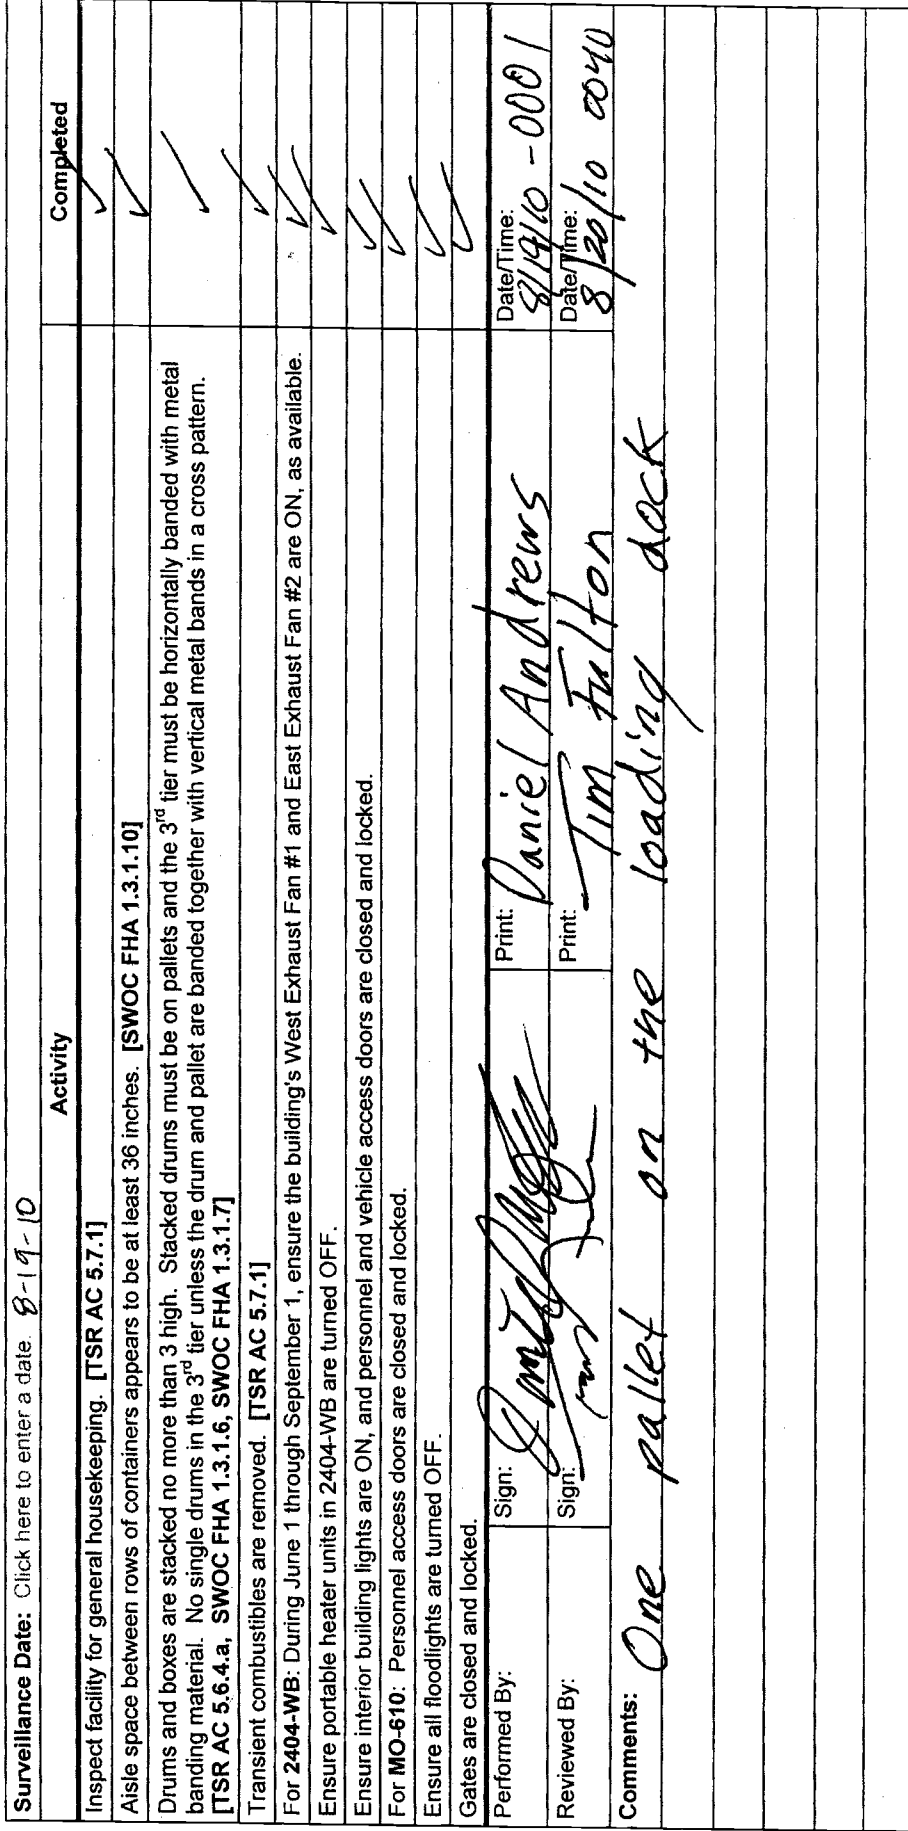 Surveillance Date: Click here to enter a date. 8-19-10
Activity
Completed
Inspect facility for general housekeeping. [TSR AC 5.7.1]
Aisle space between rows of containers appears to be at least 36 inches. [SWOC FHA 1.3.1.10]
Drums and boxes are stacked no more than 3 high. Stacked drums must be on pallets and the 3rd tier must be horizontally banded with metal
banding material. No single drums in the 3rd tier unless the drum and pallet are banded together with vertical metal bands in a cross pattern.
[TSR AC 5.6.4.a, SWOC FHA 1.3.1.6, SWOC FHA 1.3.1.7]
Transient combustibles are removed. [TSR AC 5.7.1]
For 2404-WB: During June 1 through September 1, ensure the building's West Exhaust Fan #1 and East Exhaust Fan #2 are ON, as available.
Ensure portable heater units in 2404-WB are turned OFF.
Ensure interior building lights are ON, and personnel and vehicle access doors are closed and locked.
For MO-610: Personnel access doors are closed and locked.
Ensure all floodlights are turned OFF.
Gates are closed and locked.
Performed By:
Sign:
Print: Daniel Andrews
Date/Time: 8/19/10 - 0001
Reviewed By:
Sign:
Print: Tim Fulton
Date/Time: 8/20/10 0040
Comments: One pallet on the loading dock